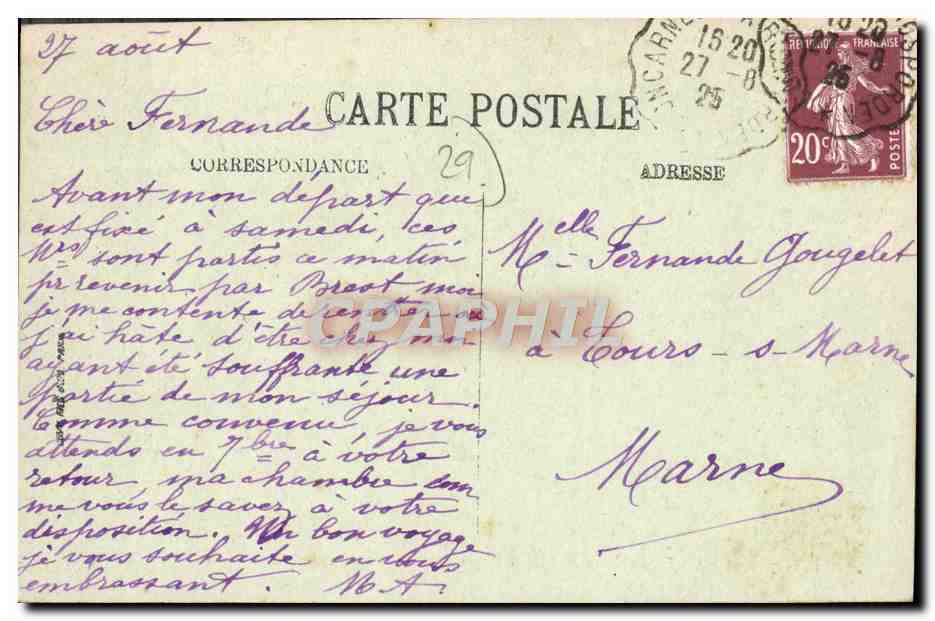 27 août
CARTE POSTALE
Chère Fernande
CORRESPONDANCE
29
ADRESSE
Avant mon départ qui
est fixé à samedi, ces
Mrs sont partis ce matin
pr revenir par Brest moi
je me contente de rentrer
j'ai hâte d'être chez moi
ayant été souffrante une
partie de mon séjour.
Comme convenu je vous
attends en 7bre à votre
retour ma chambre com
me vous le savez à votre
disposition. Un bon voyage
je vous souhaite en vous
embrassant. M A.
Melle Fernande Gougelet
à Tours-s-Marne
Marne
REPUBLIQUE FRANCAISE
20c
POSTES
16 20
27 -8
25
16 20
27 -8
25
CPAPHIL